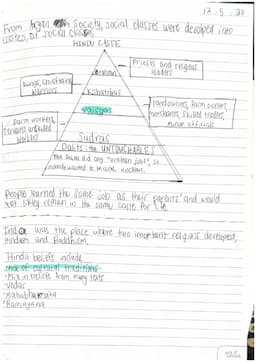 12.5.20
From Aryan Society, social classes were developed into
castes, or social classes
HINDU CASTE
Priests and religious
leaders
Brahman
Kings, chieftains,
Warriors
Kshatriyas
Vaisyas
Landowners, farm owners,
merchants, skilled trades,
minor officials
Farm workers,
servants unskilled
workers
Sudras
Dalits: the UNTOUCHABLES
The Dalits did any "unclean jobs", so
nobody wanted to touch them.
People learned the same job as their parents and would
most likely remain in the same caste for life.
India was the place where two important religions developed,
Hinduism and Buddhism.
Hindu beliefs include
-mix of cultural traditions
-Mix in beliefs from many texts
-Vedas
-Mahabharata
-Ramayana